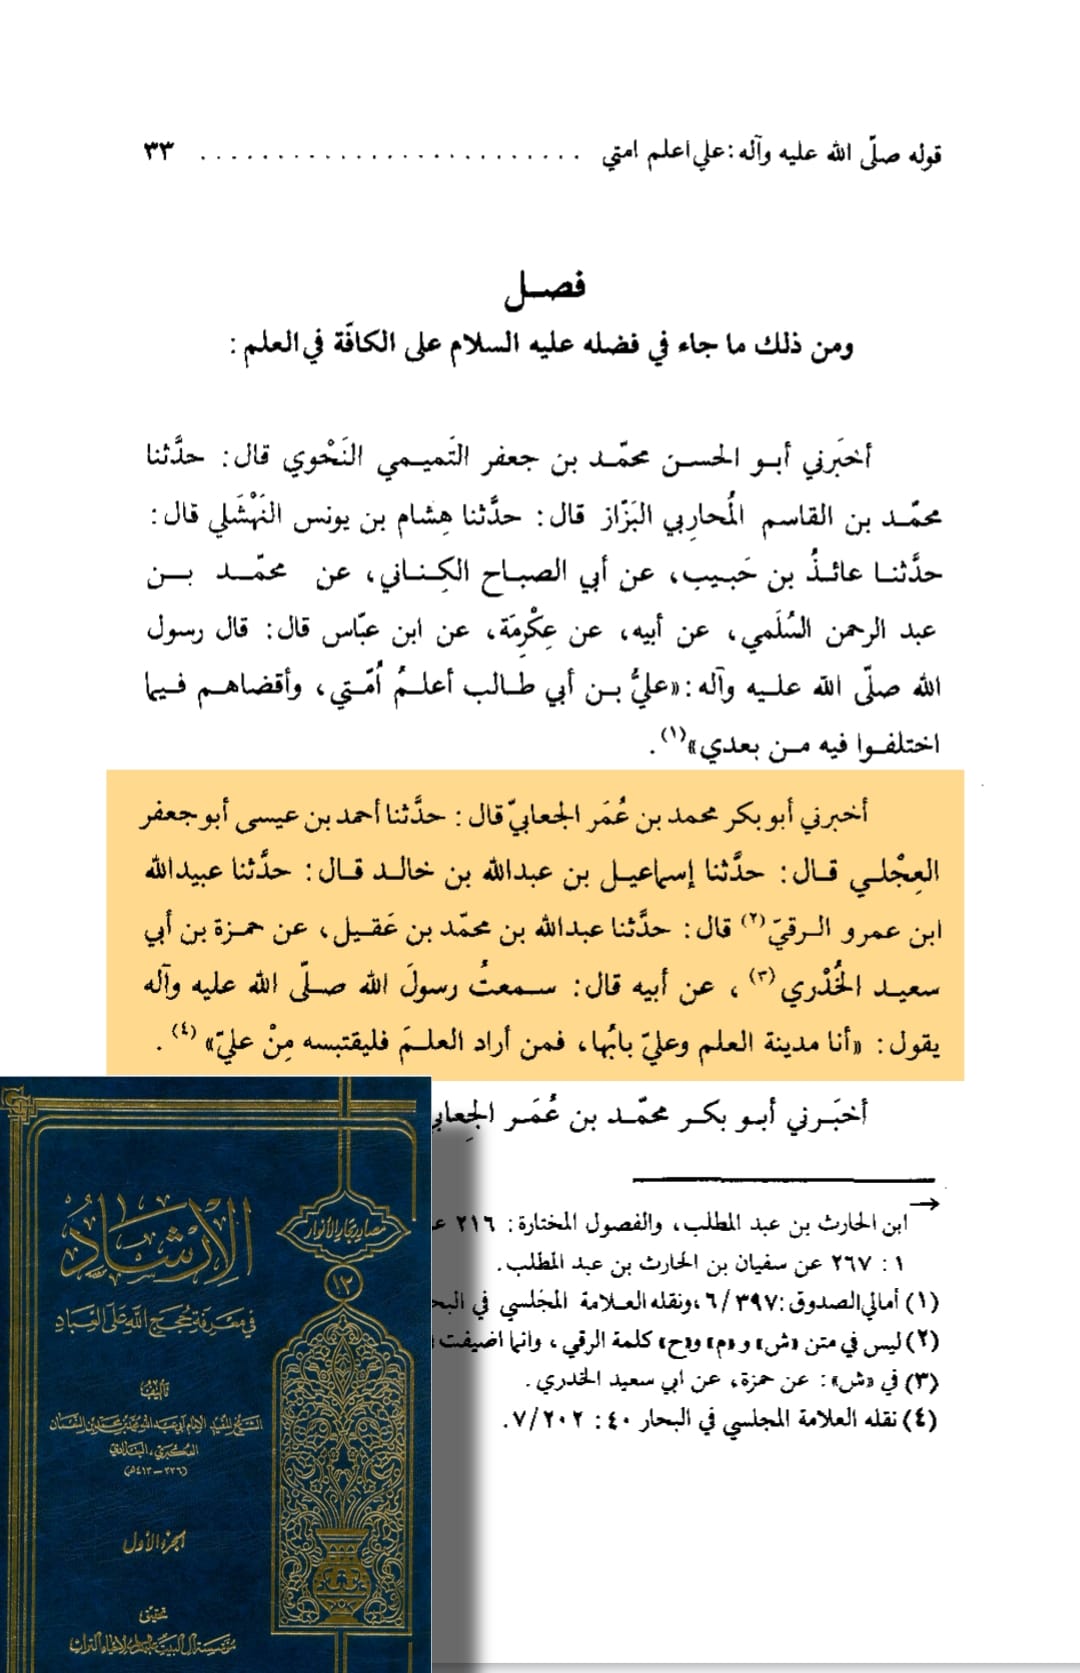 قوله صلّى الله عليه وآله: علي اعلم امتي . . . . . . . . . . . . . . . . . . . . . . . . . ٣٣
فصـل
ومن ذلك ما جاء في فضله عليه السلام على الكافّة في العلم :
أخبَرني أبـو الحسـن محمّـد بـن جعفر التَميـمي النَحْوي قال: حدَّثنا
محمّـد بن القاسم المُحاربي البَزّاز قال: حدَّثنا هِشام بن يونس النَهْشَلي قال:
حدَّثنـا عائـذُ بن حَبـيب، عن أبي الصبـاح الكِنـاني، عن محمّـد بـن
عبد الرحمن السُلَمي، عن أبيه، عن عِكْرِمَة، عن ابن عبّاس قال: قال رسول
الله صلّى الله عليـه وآله: «عليُّ بـن أبي طـالب أعلـمُ اُمّـتي، وأقضاهـم فيـما
اختلفـوا فيه مـن بعدي»(١).
أخبرني أبو بكر محمد بن عُمَر الجعابيّ قال: حدَّثنا أحمد بن عيسى أبو جعفر
العِجْلـي قـال: حدَّثنا إسماعيـل بـن عبدالله بـن خالـد قـال: حدَّثنا عبيدالله
ابن عمرو الـرقيّ(٢) قال: حدَّثنا عبدالله بن محمّد بن عَقيـل، عن حمـزة بن أبي
سعيـد الخُدْري(٣)، عن أبيه قال: سـمعتُ رسولَ الله صلّى الله عليه وآله
يقول: «أنا مدينة العلم وعليّ بابُها، فمن أراد العلـمَ فليقتبسه مِنْ عليّ»(٤).
أخبَـرني أبـو بكـر محمّـد بن عُمَـر الجِعابي
ابن الحارث بن عبد المطلب، والفصول المختارة: ٢١٦
١ : ٢٦٧ عن سفيان بن الحارث بن عبد المطلب.
(١) أمالي الصدوق: ٦/٣٩٧، ونقله العـلامة المجلسي في
(٢) ليس في متن «ش» و«م» و«ح» كلمة الرقي، وانما اضيفت
(٣) في «ش»: عن حمزة، عن ابي سعيد الخدري.
(٤) نقله العلامة المجلسي في البحار ٤٠: ٧/٢٠٢.
الإرشاد
في معرفة حجج الله على العباد
تأليف
الشيخ المفيد الإمام أبي عبد الله محمد بن محمد بن النعمان
العكبري، البغدادي
(٣٣٦ – ٤١٣هـ)
الجزء الأول
تحقيق
مؤسسة آل البيت عليهم السلام لإحياء التراث
مصادر بحار الأنوار
١٢